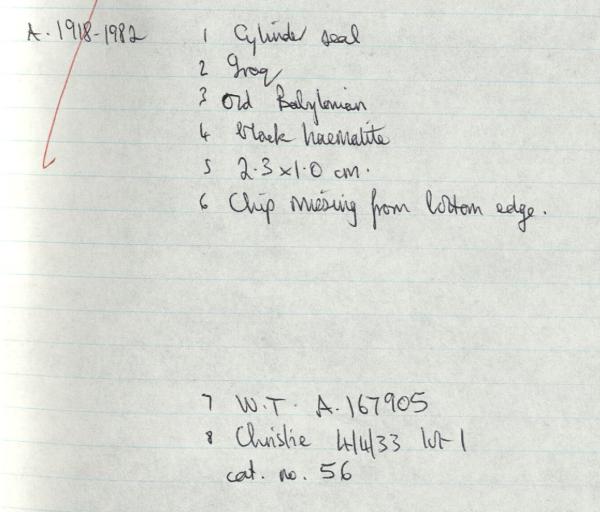 A. 1918-1982 1 Cylinder seal
2 Iraq
3 Old Babylonian
4 black haematite
5 2.3 x 1.0 cm.
6 Chip missing from bottom edge.
7 W.T. A.167905
8 Christie 4/4/33 lot 1
cat. no. 56